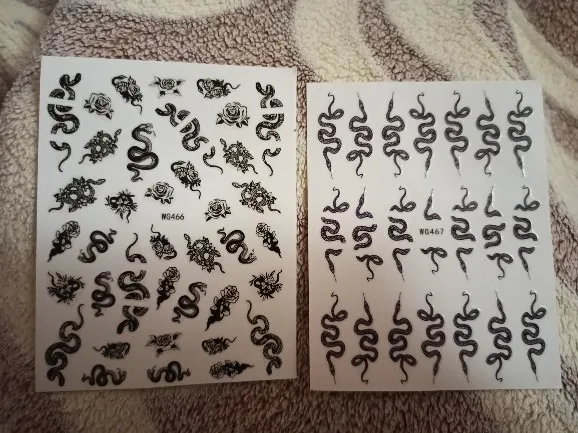 WG466
WG467